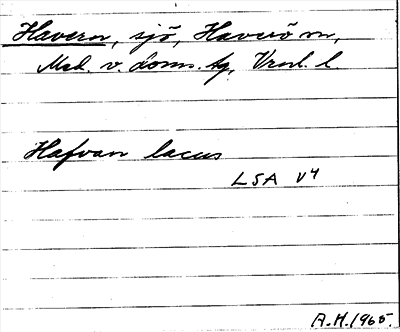 Havern, sjö, Haverö sn,
Med. v. doms. tg, Vnl. l.
Hafvan lacus
LSA V4
A.H. 1965.